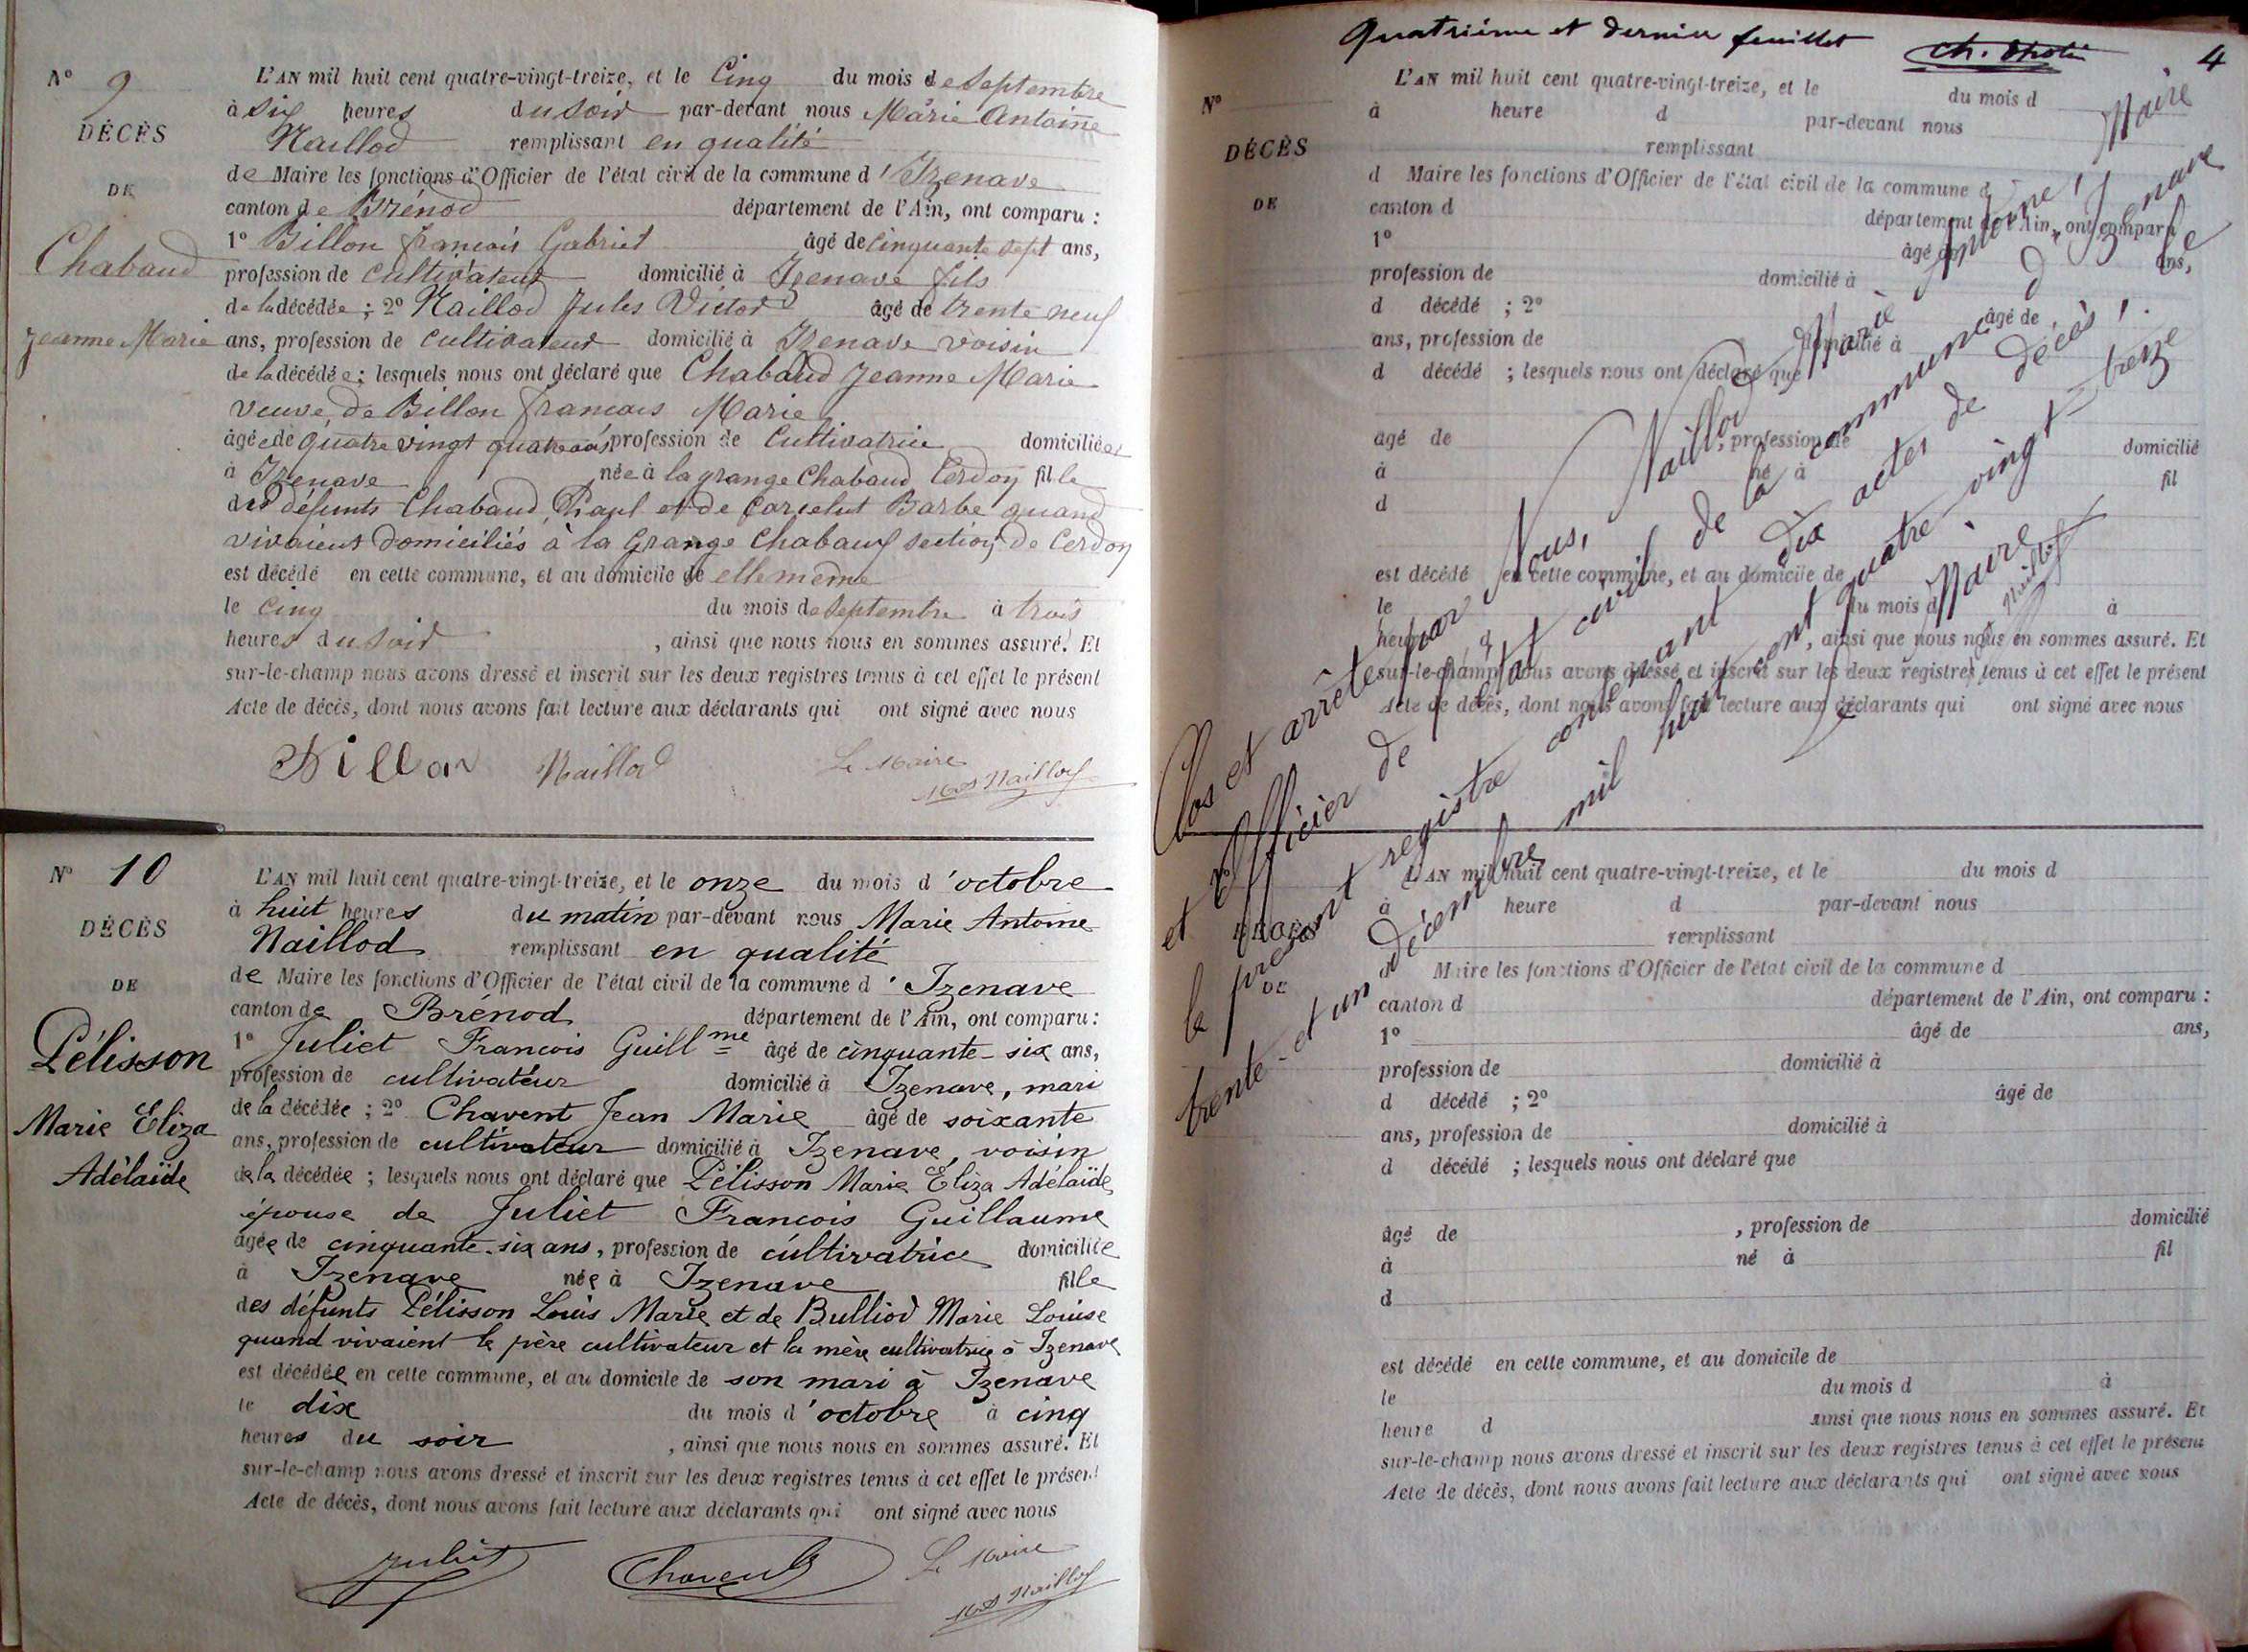 N° 9
DÉCÈS
DE
Chabaud
Jeanne Marie
L'AN mil huit cent quatre-vingt-treize, et le Cinq du mois de Septembre
à six heures du soir par-devant nous Marie Antoine
Naillod remplissant en qualité
de Maire les fonctions d'Officier de l'état civil de la commune d'Izenave
canton de Brénod département de l'Ain, ont comparu :
1° Billon françois Gabriel âgé de cinquante sept ans,
profession de cultivateur domicilié à Izenave fils
de la décédée ; 2° Naillod Jules Victor âgé de trente neuf
ans, profession de cultivateur domicilié à Izenave voisin
de la décédée ; lesquels nous ont déclaré que Chabaud Jeanne Marie
veuve de Billon francois Marie
âgée de quatre vingt quatre ans, profession de Cultivatrice domiciliée
à Izenave née à la grange Chabaud Cerdon fille
des défunts Chabaud Paul et de Barbe quand
vivaient domiciliés à la Grange Chabaud section de Cerdon
est décédé en cette commune, et au domicile de elle même
le Cinq du mois de Septembre à trois
heures du soir , ainsi que nous nous en sommes assuré. Et
sur-le-champ nous avons dressé et inscrit sur les deux registres tenus à cet effet le présent
Acte de décès, dont nous avons fait lecture aux déclarants qui ont signé avec nous
Billon Naillod Le Maire
Naillod
N° 10
DÉCÈS
DE
Pélisson
Marie Eliza
Adélaïde
L'AN mil huit cent quatre-vingt-treize, et le onze du mois d'octobre
à huit heures du matin par-devant nous Marie Antoine
Naillod remplissant en qualité
de Maire les fonctions d'Officier de l'état civil de la commune d'Izenave
canton de Brénod département de l'Ain, ont comparu :
1° Juliet Francois Guillme âgé de cinquante-six ans,
profession de cultivateur domicilié à Izenave, mari
de la décédée ; 2° Chavent Jean Marie âgé de soixante
ans, profession de cultivateur domicilié à Izenave, voisin
de la décédée ; lesquels nous ont déclaré que Pélisson Marie Eliza Adélaïde
épouse de Juliet Francois Guillaume
âgée de cinquante-six ans, profession de cultivatrice domiciliée
à Izenave née à Izenave fille
des défunts Pélisson Louis Marie et de Bulliod Marie Louise
quand vivaient le père cultivateur et la mère cultivatrice à Izenave
est décédée en cette commune, et au domicile de son mari à Izenave
le dix du mois d'octobre à cinq
heures du soir , ainsi que nous nous en sommes assuré. Et
sur-le-champ nous avons dressé et inscrit sur les deux registres tenus à cet effet le présent
Acte de décès, dont nous avons fait lecture aux déclarants qui ont signé avec nous
Juliet Chavent Le Maire
Naillod
Quatrième et dernier feuillet
4
N°
DÉCÈS
DE
L'AN mil huit cent quatre-vingt-treize, et le du mois d
à heure d par-devant nous
remplissant
d Maire les fonctions d'Officier de l'état civil de la commune d
canton d département de l'Ain, ont comparu
1° âgé de ans,
profession de domicilié à
d décédé ; 2° âgé de
ans, profession de domicilié à
d décédé ; lesquels nous ont déclaré que
âgé de , profession de domicilié
à né à fil
d
est décédé en cette commune, et au domicile de
le du mois d à
heure d , ainsi que nous nous en sommes assuré. Et
sur-le-champ nous avons dressé et inscrit sur les deux registres tenus à cet effet le présent
Acte de décès, dont nous avons fait lecture aux déclarants qui ont signé avec nous
Clos et arrêté par Nous, Naillod Marie Antoine, Maire
et Officier de l'état civil de la commune d'Izenave
le présent registre contenant dix actes de décès, le
trente-et-un Décembre mil huit cent quatre-vingt-treize
Le Maire
Naillod
DÉCÈS
DE
L'AN mil huit cent quatre-vingt-treize, et le du mois d
à heure d par-devant nous
remplissant
Maire les fonctions d'Officier de l'état civil de la commune d
canton d département de l'Ain, ont comparu :
1° âgé de ans,
profession de domicilié à
d décédé ; 2° âgé de
ans, profession de domicilié à
d décédé ; lesquels nous ont déclaré que
âgé de , profession de domicilié
à né à fil
d
est décédé en cette commune, et au domicile de
le du mois d à
heure d ainsi que nous nous en sommes assuré. Et
sur-le-champ nous avons dressé et inscrit sur les deux registres tenus à cet effet le présent
Acte de décès, dont nous avons fait lecture aux déclarants qui ont signé avec nous